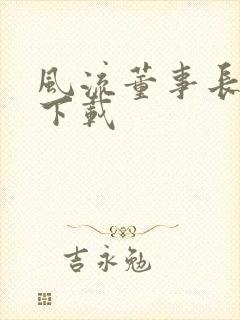 風流董事長
下載
吉永勉